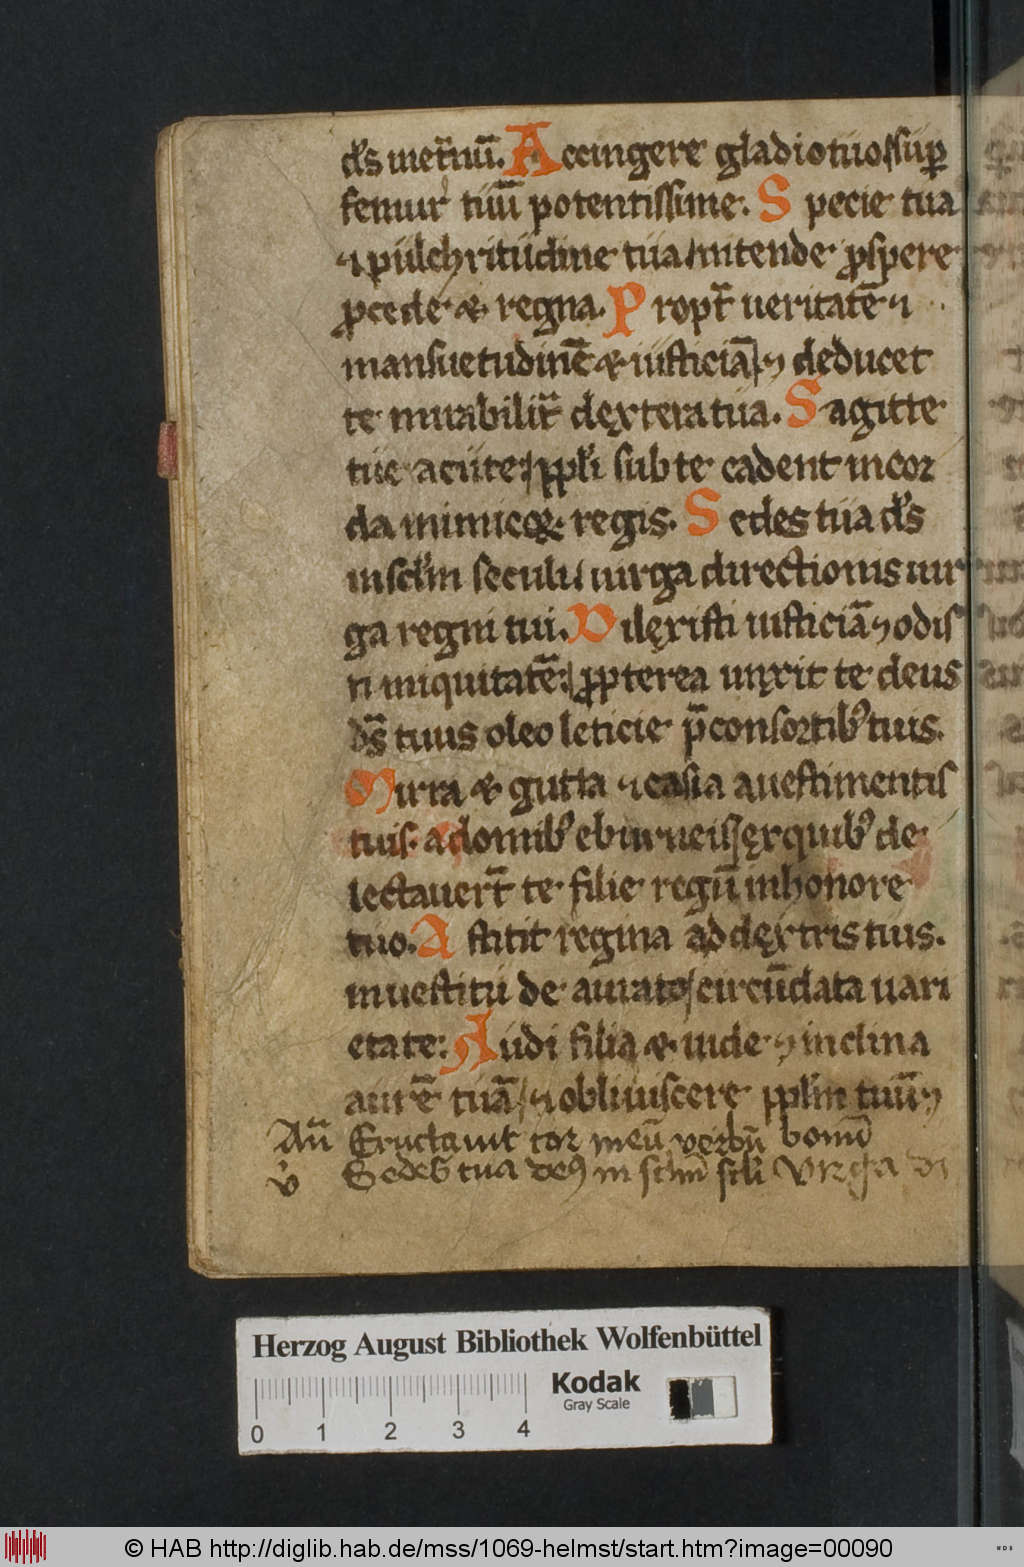 ds ineternū. Accingere gladio tuo sup
femur tuū potentissime. Specie tua
⁊ pulchritudine tua intende prospere
procede & regna. Propt̄ ueritatē ⁊
mansuetudinē & iusticiā ⁊ deducet
te mirabilit̄ dextera tua. Sagitte
tue acute ppli sub te cadent in cor
da inimicoꝝ regis. Sedes tua ds
in sclm seculi uirga directionis uir
ga regni tui. Dilexisti iusticiā ⁊ odis
ti iniquitatē propterea unxit te deus
ds̄ tuus oleo leticie p̄ consortib; tuis.
Mirra & gutta ⁊ casia a uestimentis
tuis. a domib; eburneis ex quib; de
lectauert̄ te filie regū in honore
tuo. Astitit regina ad dextris tuis.
in uestitu de aurato circūdata uari
etate. Audi filia & uide ⁊ inclina
aurē tuā ⁊ obliuiscere pplm tuū ⁊
Añ Eructauit cor meū verbū bonū
v̓ Sedes tua deꝰ in sclm̄ scli Virga di
Herzog August Bibliothek Wolfenbüttel
Kodak
Gray Scale
0 1 2 3 4
© HAB http://diglib.hab.de/mss/1069-helmst/start.htm?image=00090